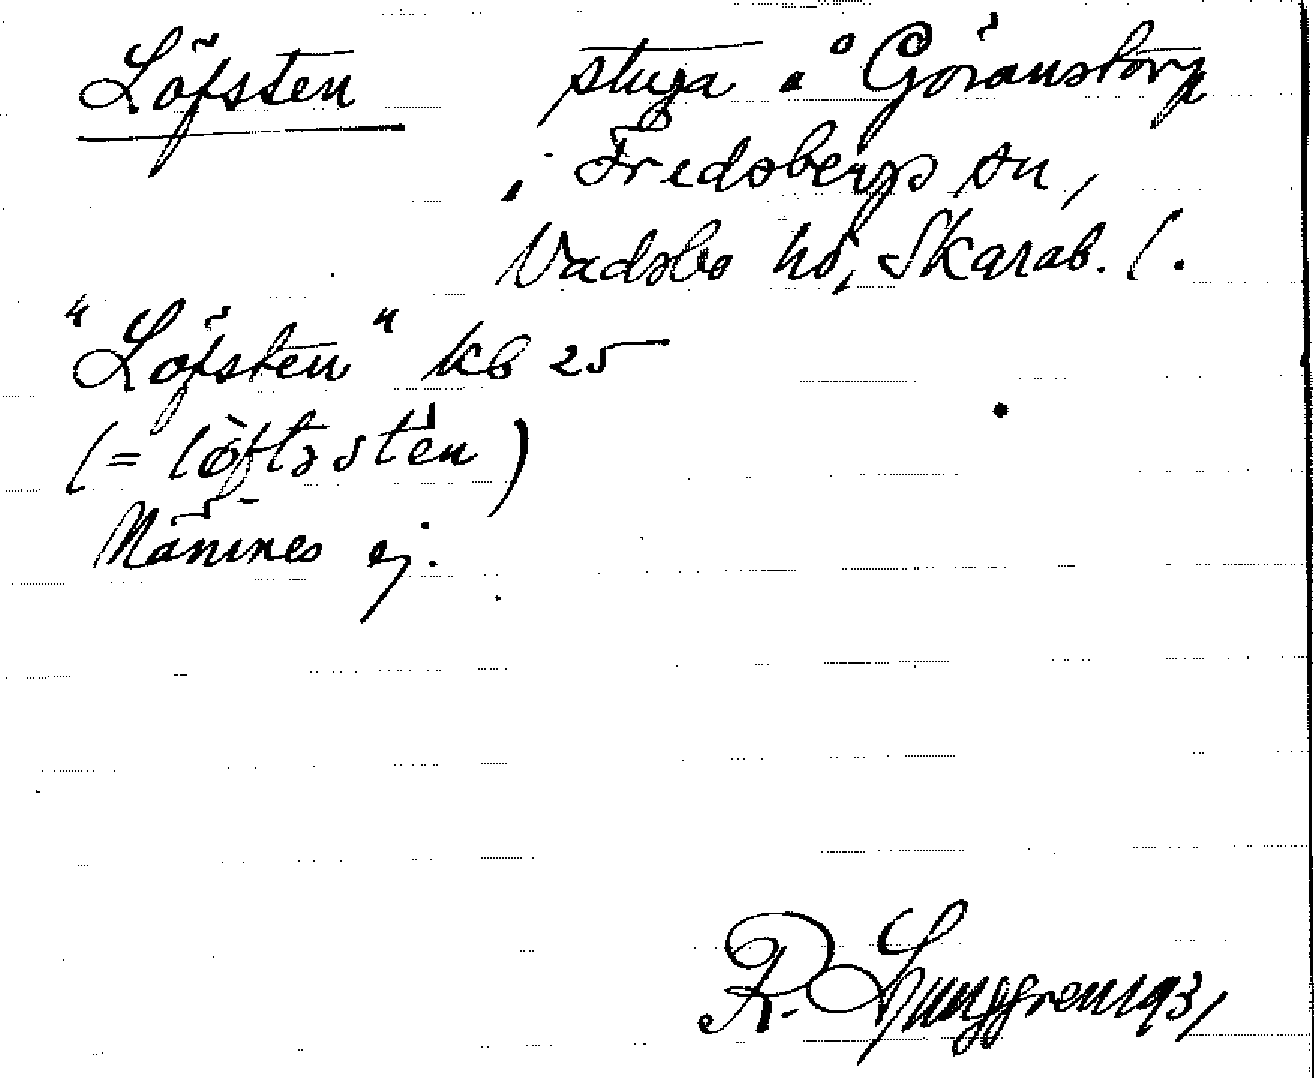 Löfsten stuga å Göranstorp
i Fredsbergs sn,
Vadsbo hd, Skarab. l.
"Löfsten" kb 25
(= löftəstèn)
Männes ej.
R. Ljunggren 1931